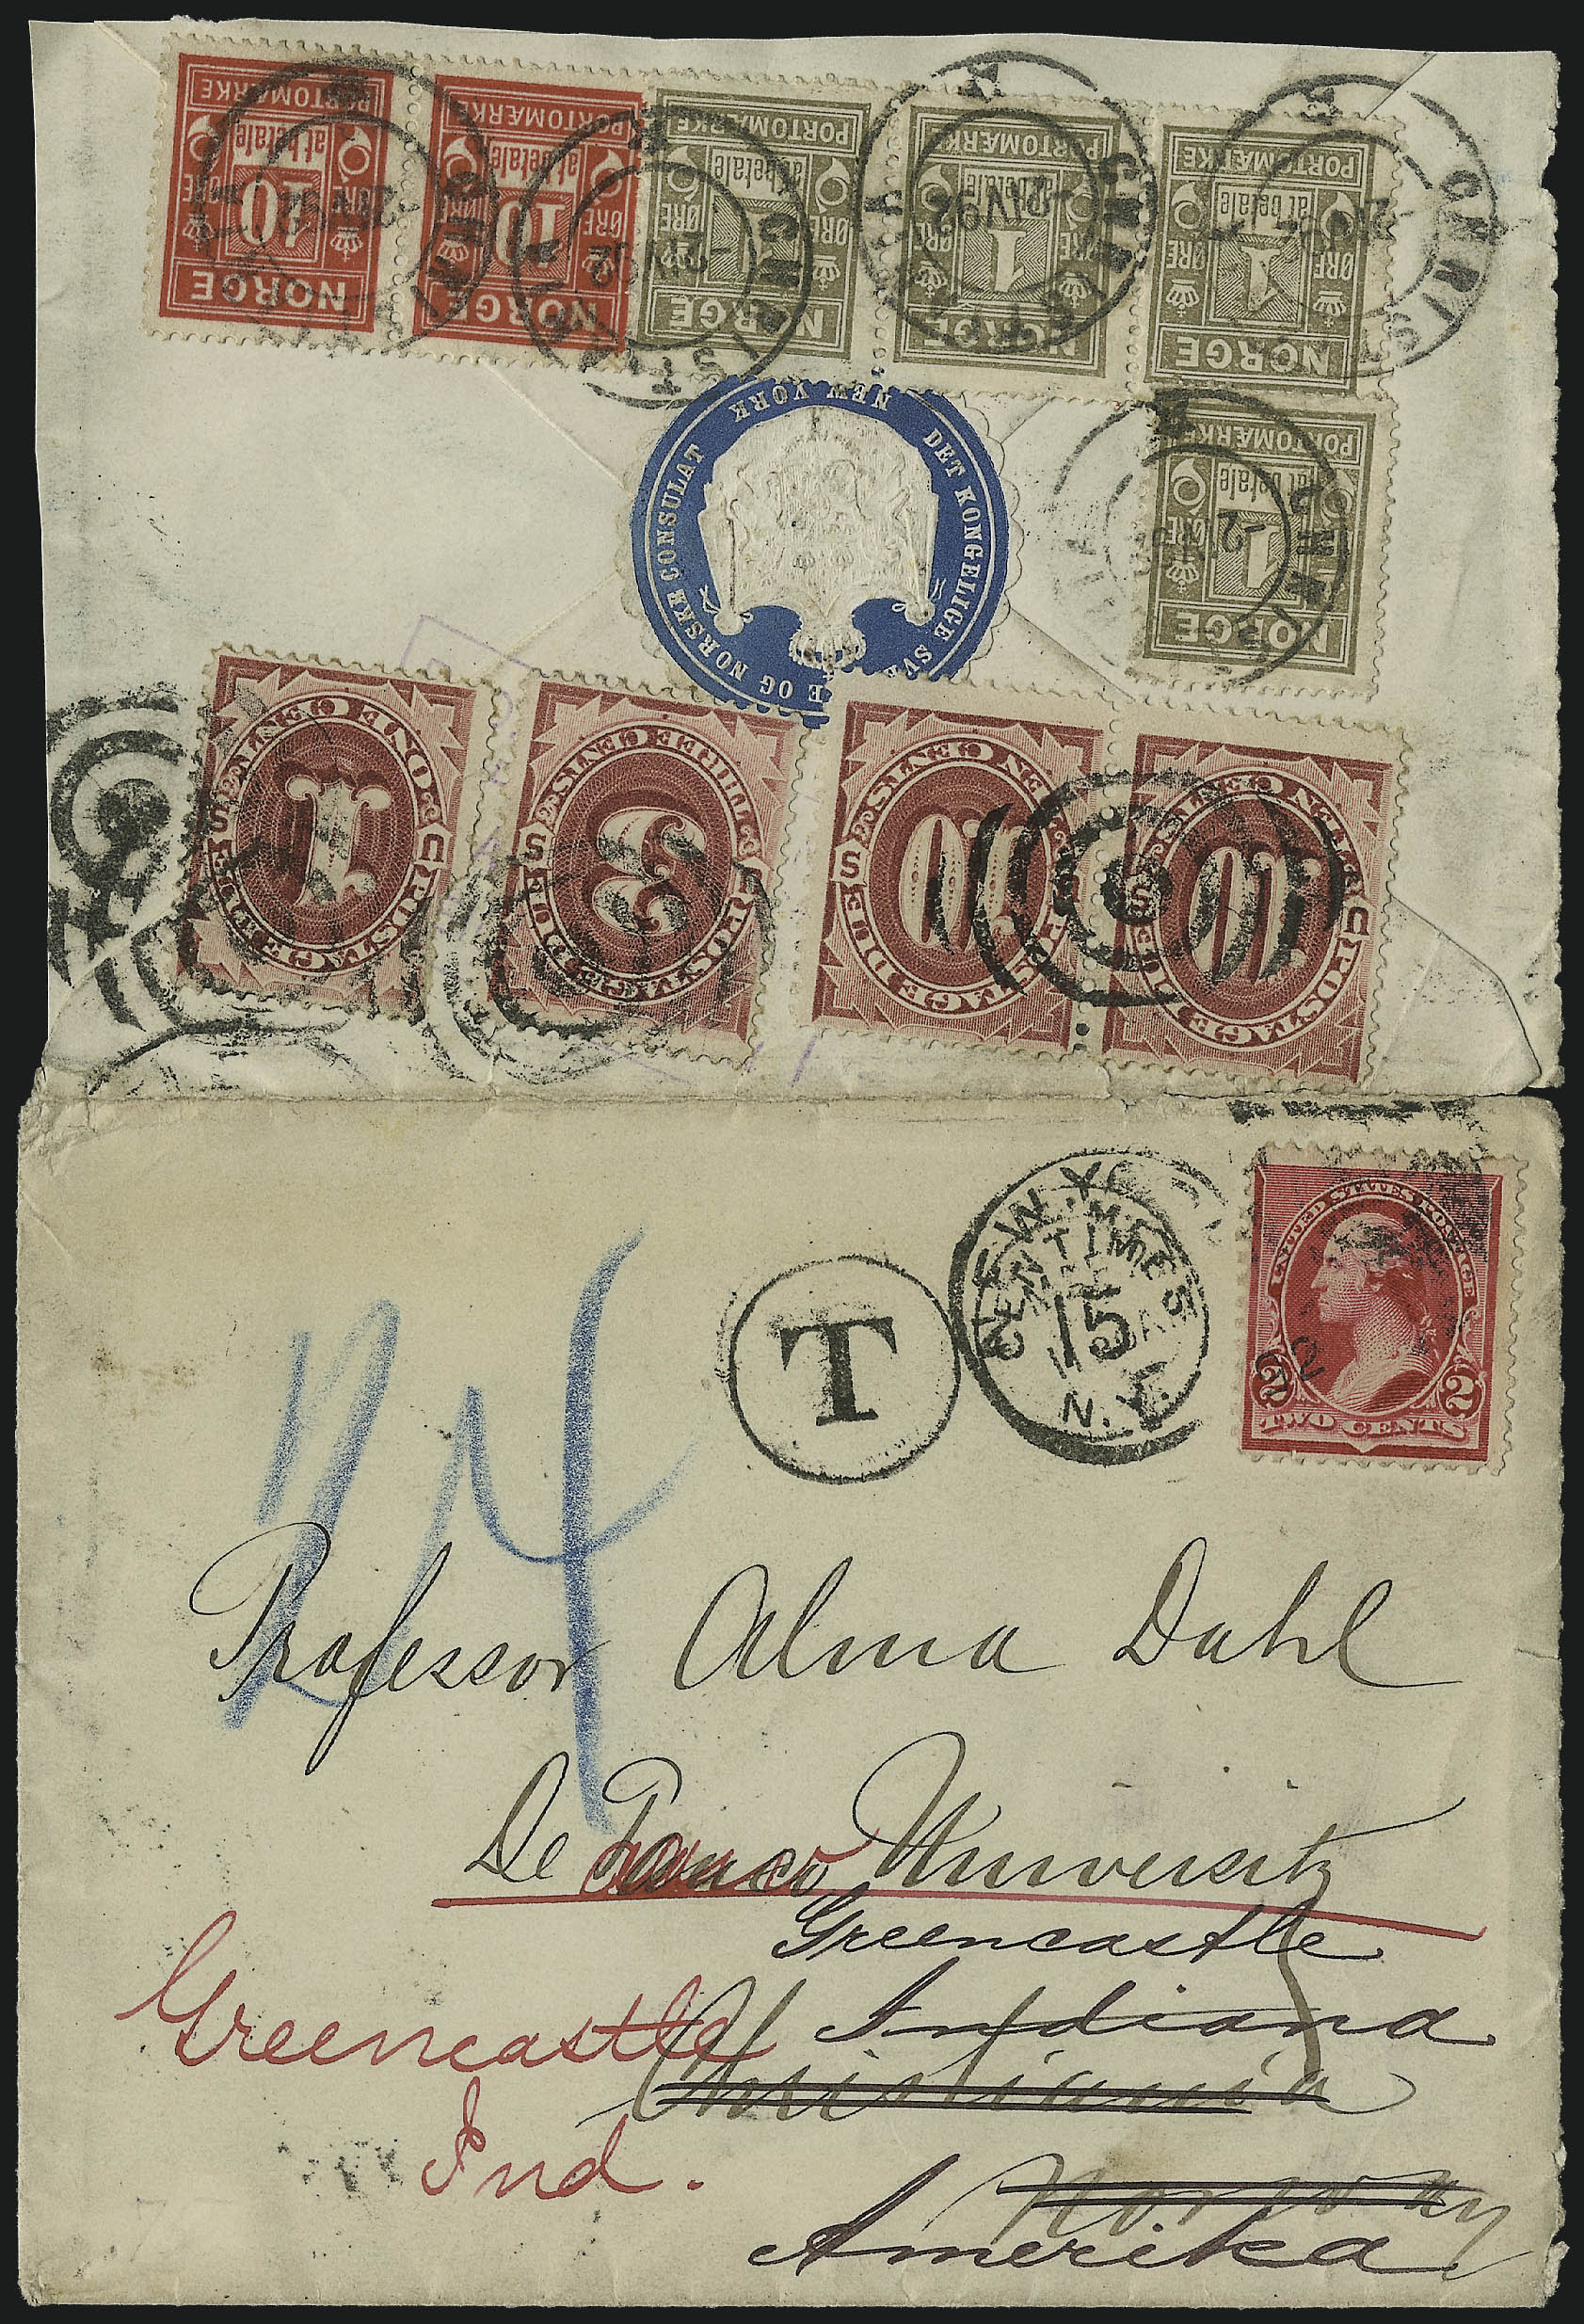 NORGE
10
ØRE ØRE
at betale
PORTOMÆRKE
NORGE
10
ØRE
at betale
PORTOMÆRKE
NORGE
1
ØRE ØRE
at betale
PORTOMÆRKE
NORGE
1
ØRE
at betale
PORTOMÆRKE
NORGE
1
ØRE ØRE
at betale
PORTOMÆRKE
NORGE
1
ØRE
at betale
PORTOMÆRKE
DET KONGELIGE SVENSKE OG NORSKE CONSULAT NEW YORK
POSTAGE DUE
ONE CENT
U S
1
POSTAGE DUE
THREE CENTS
U S
3
POSTAGE DUE
TEN CENTS
S
10
POSTAGE DUE
TEN CENTS
U S
10
NEW YORK
N.Y.
CENTIMES
15
T
UNITED STATES POSTAGE
2 2
TWO CENTS
24
Professor Alma Dahl
De Pauw University
Greencastle
Indiana
Greencastle
Christiania
Ind.
Norway
Amerika